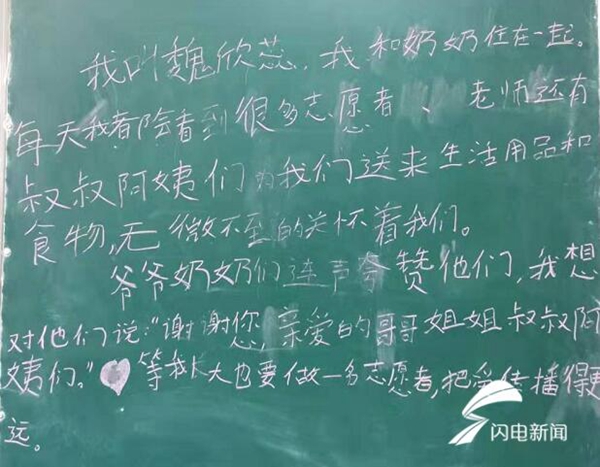 我叫魏欣蕊,我和奶奶住在一起。
每天我都会看到很多志愿者、老师还有
叔叔阿姨们为我们送来生活用品和
食物,无微不至的关怀着我们。
爷爷奶奶们连声夸赞他们,我想
对他们说:“谢谢您,亲爱的哥哥姐姐叔叔阿
姨们。”等我长大也要做一名志愿者,把爱传播得更
远。
闪电新闻